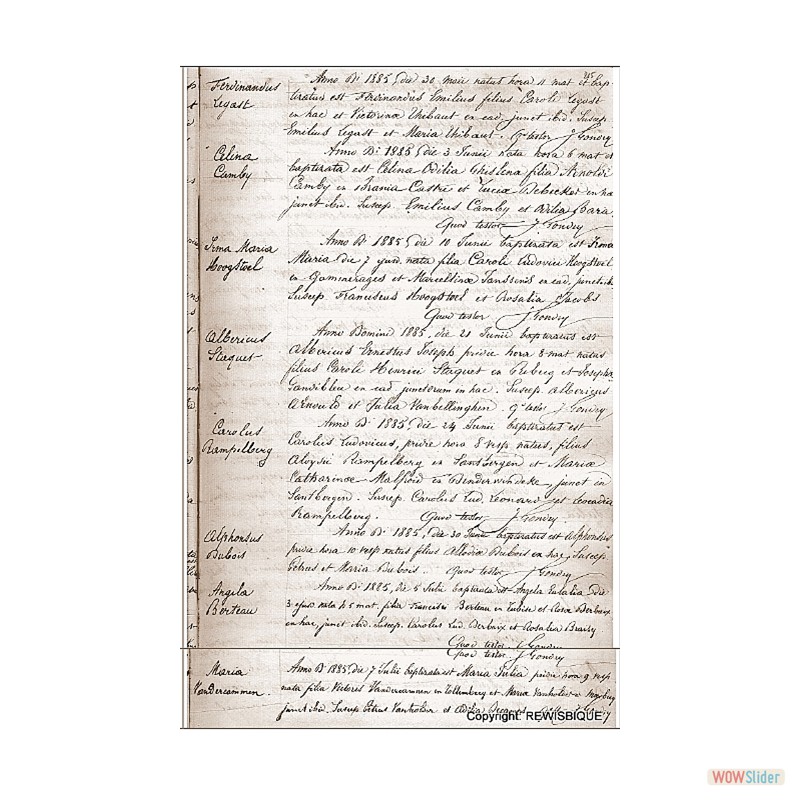 Ferdinandus Legast
Anno Di 1885, die 30 maii natus hora 11 mat et bap-
tizatus est Ferdinandus Emilius filius Caroli Legast
ex hac et Victorina Thibaut ex ead, junct ibid. Suscep.
Emilius Legast et Maria Thibaut. Qd testor J Gondry
Celina Camby
Anno Di 1885, die 3 Junii nata hora 6 mat et
baptizata est Celina Odilia Ghislena filia Arnoldi
Camby ex et Lucia Debecker ex hac
junct ibi. Suscep. Emilius Camby et Odilia Baria
Quod testor J. Gondry
Irma Maria Hoogstoel
Anno Di 1885, die 10 Junii baptizata est Irma
Maria die 7 ejusd. nata filia Caroli Ludovici Hoogstoel
ex Gammerages et Marcellina Janssens ex ead, junct ib.
Suscep Franciscus Hoogstoel et Rosalia Jacobs
Quod testor J. Gondry
Albericus Staquet
Anno Domini 1885, die 21 Junii baptizatus est
Albericus Ernestus Joseph pridie hora 8 mat natus
filius Caroli Henrici Staquet ex et Josepha
ex ead junctorum in hac. Suscep. Albericus
et Julia Vanbellinghen. Qd testor J Gondry
Carolus Rampelberg
Anno Di 1885, die 24 Junii baptizatus est
Carolus Ludovicus, pridie hora 8 vesp. natus, filius
Aloysii Rampelberg ex Santbergen et Maria
Catharina ex Denderwindeke, junct in
Santbergen. Suscep. Carolus Lud. Leonard et Leocadia
Rampelberg. Quod testor J. Gondry
Alphonsus Dubois
Anno Di 1885, die 30 Junii baptizatus est Alphonsus
pridie hora 10 vesp natus filius Dubois ex hac, Suscep.
Petrus et Maria Dubois. Quod testor J Gondry
Angela Berteau
Anno Di 1885, die 5 Julii baptizata est Angela Eulalia, die
3 ejusd nata h 5 mat. filia Francisci Berteau ex Tubise et Derbaix
ex hac, junct ibid. Suscep. Carolus Lud. Derbaix et Rosalia
Quod testor J Gondry
Quod testor J Gondry
Maria Vandercammen.
Anno Di 1885, die 7 Julii baptizata est Maria Julia pridie hora 9 vesp
nata filia Victoris Vandercammen ex et Maria
junct ibi. Suscep Petrus et Odilia J Gondry
Copyright: REWISBIQUE
WOWSlider